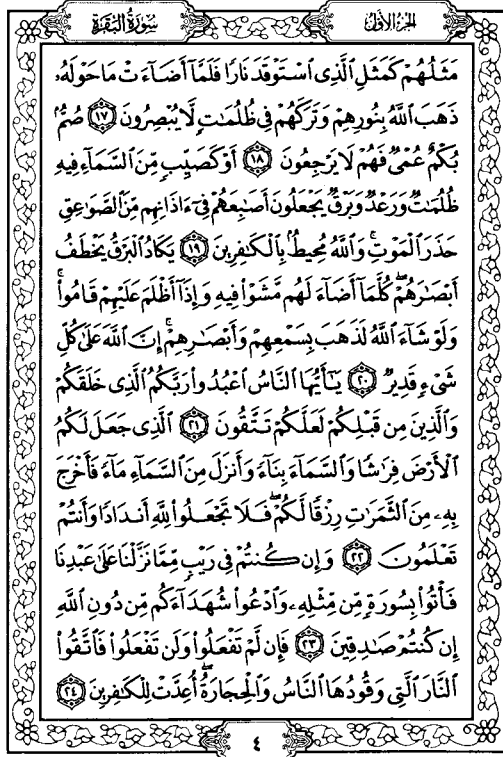 سُورَةُ البَقَرَةِ
الجُزءُ الأَوَّلُ
مَثَلُهُمْ كَمَثَلِ ٱلَّذِى ٱسْتَوْقَدَ نَارًا فَلَمَّآ أَضَآءَتْ مَا حَوْلَهُۥ
ذَهَبَ ٱللَّهُ بِنُورِهِمْ وَتَرَكَهُمْ فِى ظُلُمَـٰتٍ لَّا يُبْصِرُونَ ١٧ صُمٌّۢ
بُكْمٌ عُمْىٌ فَهُمْ لَا يَرْجِعُونَ ١٨ أَوْ كَصَيِّبٍ مِّنَ ٱلسَّمَآءِ فِيهِ
ظُلُمَـٰتٌ وَرَعْدٌ وَبَرْقٌ يَجْعَلُونَ أَصَـٰبِعَهُمْ فِىٓ ءَاذَانِهِم مِّنَ ٱلصَّوَٰعِقِ
حَذَرَ ٱلْمَوْتِ ۚ وَٱللَّهُ مُحِيطٌۢ بِٱلْكَـٰفِرِينَ ١٩ يَكَادُ ٱلْبَرْقُ يَخْطَفُ
أَبْصَـٰرَهُمْ ۖ كُلَّمَآ أَضَآءَ لَهُم مَّشَوْا۟ فِيهِ وَإِذَآ أَظْلَمَ عَلَيْهِمْ قَامُوا۟ ۚ
وَلَوْ شَآءَ ٱللَّهُ لَذَهَبَ بِسَمْعِهِمْ وَأَبْصَـٰرِهِمْ ۚ إِنَّ ٱللَّهَ عَلَىٰ كُلِّ
شَىْءٍ قَدِيرٌ ٢٠ يَـٰٓأَيُّهَا ٱلنَّاسُ ٱعْبُدُوا۟ رَبَّكُمُ ٱلَّذِى خَلَقَكُمْ
وَٱلَّذِينَ مِن قَبْلِكُمْ لَعَلَّكُمْ تَتَّقُونَ ٢١ ٱلَّذِى جَعَلَ لَكُمُ
ٱلْأَرْضَ فِرَٰشًا وَٱلسَّمَآءَ بِنَآءً وَأَنزَلَ مِنَ ٱلسَّمَآءِ مَآءً فَأَخْرَجَ
بِهِۦ مِنَ ٱلثَّمَرَٰتِ رِزْقًا لَّكُمْ ۖ فَلَا تَجْعَلُوا۟ لِلَّهِ أَندَادًا وَأَنتُمْ
تَعْلَمُونَ ٢٢ وَإِن كُنتُمْ فِى رَيْبٍ مِّمَّا نَزَّلْنَا عَلَىٰ عَبْدِنَا
فَأْتُوا۟ بِسُورَةٍ مِّن مِّثْلِهِۦ وَٱدْعُوا۟ شُهَدَآءَكُم مِّن دُونِ ٱللَّهِ
إِن كُنتُمْ صَـٰدِقِينَ ٢٣ فَإِن لَّمْ تَفْعَلُوا۟ وَلَن تَفْعَلُوا۟ فَٱتَّقُوا۟
ٱلنَّارَ ٱلَّتِى وَقُودُهَا ٱلنَّاسُ وَٱلْحِجَارَةُ ۖ أُعِدَّتْ لِلْكَـٰفِرِينَ ٢٤
٤